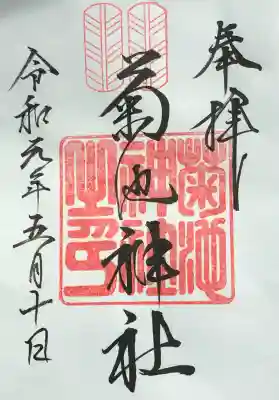 奉拝
菊池神社
菊池神社之印
令和元年五月十日